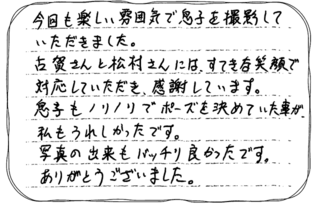 今回も楽しい雰囲気で息子を撮影して
いただきました。
古賀さんと松村さんには、すてきな笑顔で
対応していただき、感謝しています。
息子もノリノリでポーズを決めていた事が、
私もうれしかったです。
写真の出来もバッチリ良かったです。
ありがとうございました。